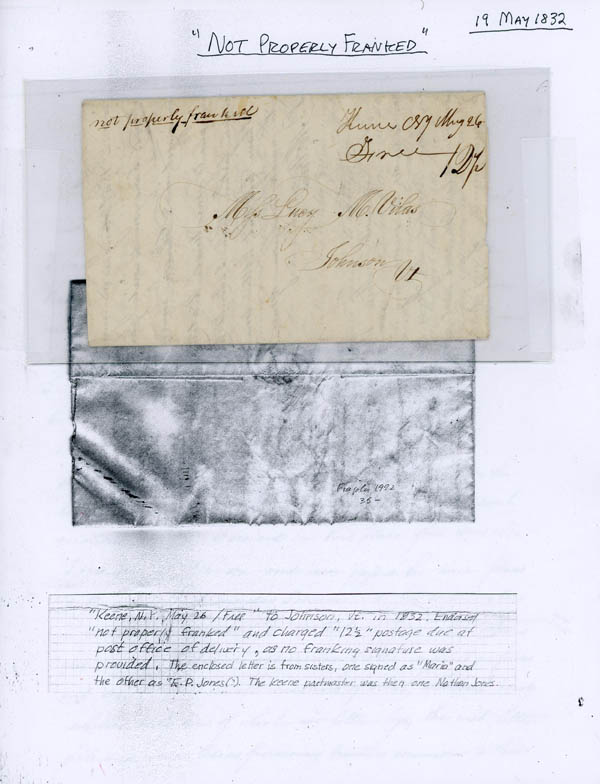 19 MAY 1832
"NOT PROPERLY FRANKED"
not properly franked
Keene NY May 26
Free 12½
Miss Lucy M. Vilas
Johnson
Vt
1992
35-
"Keene, N.Y. May 26 / Free" to Johnson, Vt. in 1832. Endorsed
"not properly franked" and charged "12½" postage due at
post office of delivery, as no franking signature was
provided. The enclosed letter is from sisters, one signed as "Maria" and
the other as "E.P. Jones(?). The Keene postmaster was then one Nathan Jones.